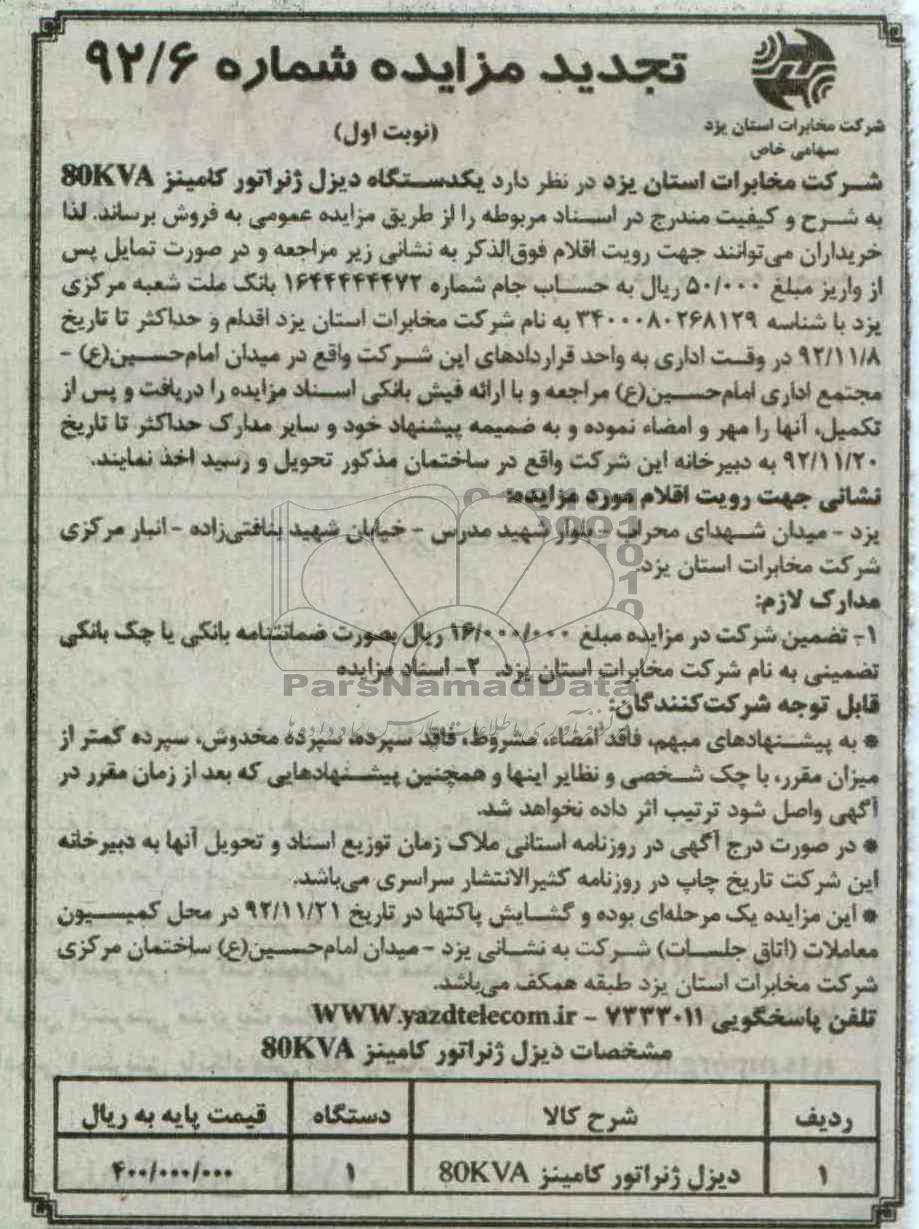 تجدید مزایده شماره ۹۲/۶
شرکت مخابرات استان یزد
سهامی خاص
(نوبت اول)
شرکت مخابرات استان یزد در نظر دارد یکدستگاه دیزل ژنراتور کامینز 80KVA
به شرح و کیفیت مندرج در اسناد مربوطه را از طریق مزایده عمومی به فروش برساند. لذا
خریداران می‌توانند جهت رویت اقلام فوق‌الذکر به نشانی زیر مراجعه و در صورت تمایل پس
از واریز مبلغ ۵۰/۰۰۰ ریال به حساب جام شماره ۱۶۴۴۴۴۴۴۷۲ بانک ملت شعبه مرکزی
یزد با شناسه ۳۴۰۰۰۸۰۲۶۸۱۲۹ به نام شرکت مخابرات استان یزد اقدام و حداکثر تا تاریخ
۹۲/۱۱/۸ در وقت اداری به واحد قراردادهای این شرکت واقع در میدان امام‌حسین(ع) -
مجتمع اداری امام‌حسین(ع) مراجعه و با ارائه فیش بانکی اسناد مزایده را دریافت و پس از
تکمیل، آنها را مهر و امضاء نموده و به ضمیمه پیشنهاد خود و سایر مدارک حداکثر تا تاریخ
۹۲/۱۱/۲۰ به دبیرخانه این شرکت واقع در ساختمان مذکور تحویل و رسید اخذ نمایند.
نشانی جهت رویت اقلام مورد مزایده:
یزد - میدان شهدای محراب - بلوار شهید مدرس - خیابان شهید بنافتی‌زاده - انبار مرکزی
شرکت مخابرات استان یزد.
مدارک لازم:
۱- تضمین شرکت در مزایده مبلغ ۱۶/۰۰۰/۰۰۰ ریال بصورت ضمانتنامه بانکی یا چک بانکی
تضمینی به نام شرکت مخابرات استان یزد. ۲- اسناد مزایده
ParsNamadData
قابل توجه شرکت‌کنندگان:
* به پیشنهادهای مبهم، فاقد امضاء، مشروط، فاقد سپرده، سپرده مخدوش، سپرده کمتر از
میزان مقرر، با چک شخصی و نظایر اینها و همچنین پیشنهادهایی که بعد از زمان مقرر در
آگهی واصل شود ترتیب اثر داده نخواهد شد.
* در صورت درج آگهی در روزنامه استانی ملاک زمان توزیع اسناد و تحویل آنها به دبیرخانه
این شرکت تاریخ چاپ در روزنامه کثیرالانتشار سراسری می‌باشد.
* این مزایده یک مرحله‌ای بوده و گشایش پاکتها در تاریخ ۹۲/۱۱/۲۱ در محل کمیسیون
معاملات (اتاق جلسات) شرکت به نشانی یزد - میدان امام‌حسین(ع) ساختمان مرکزی
شرکت مخابرات استان یزد طبقه همکف می‌باشد.
تلفن پاسخگویی ۷۳۳۳۰۱۱ - WWW.yazdtelecom.ir
مشخصات دیزل ژنراتور کامینز 80KVA
ردیف شرح کالا دستگاه قیمت پایه به ریال
۱ دیزل ژنراتور کامینز 80KVA ۱ ۴۰۰/۰۰۰/۰۰۰